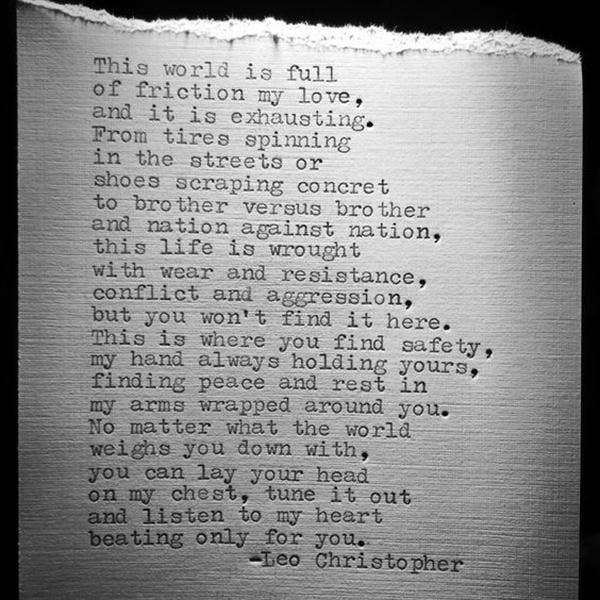 This world is full
of friction my love,
and it is exhausting.
From tires spinning
in the streets or
shoes scraping concret
to brother versus brother
and nation against nation,
this life is wrought
with wear and resistance,
conflict and aggression,
but you won't find it here.
This is where you find safety,
my hand always holding yours,
finding peace and rest in
my arms wrapped around you.
No matter what the world
weighs you down with,
you can lay your head
on my chest, tune it out
and listen to my heart
beating only for you.
-Leo Christopher